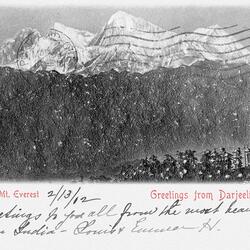 Mt. Everest 2/13/02 Greetings from Darjeel
eetings to you all from the most
India - Louis & Emma H.